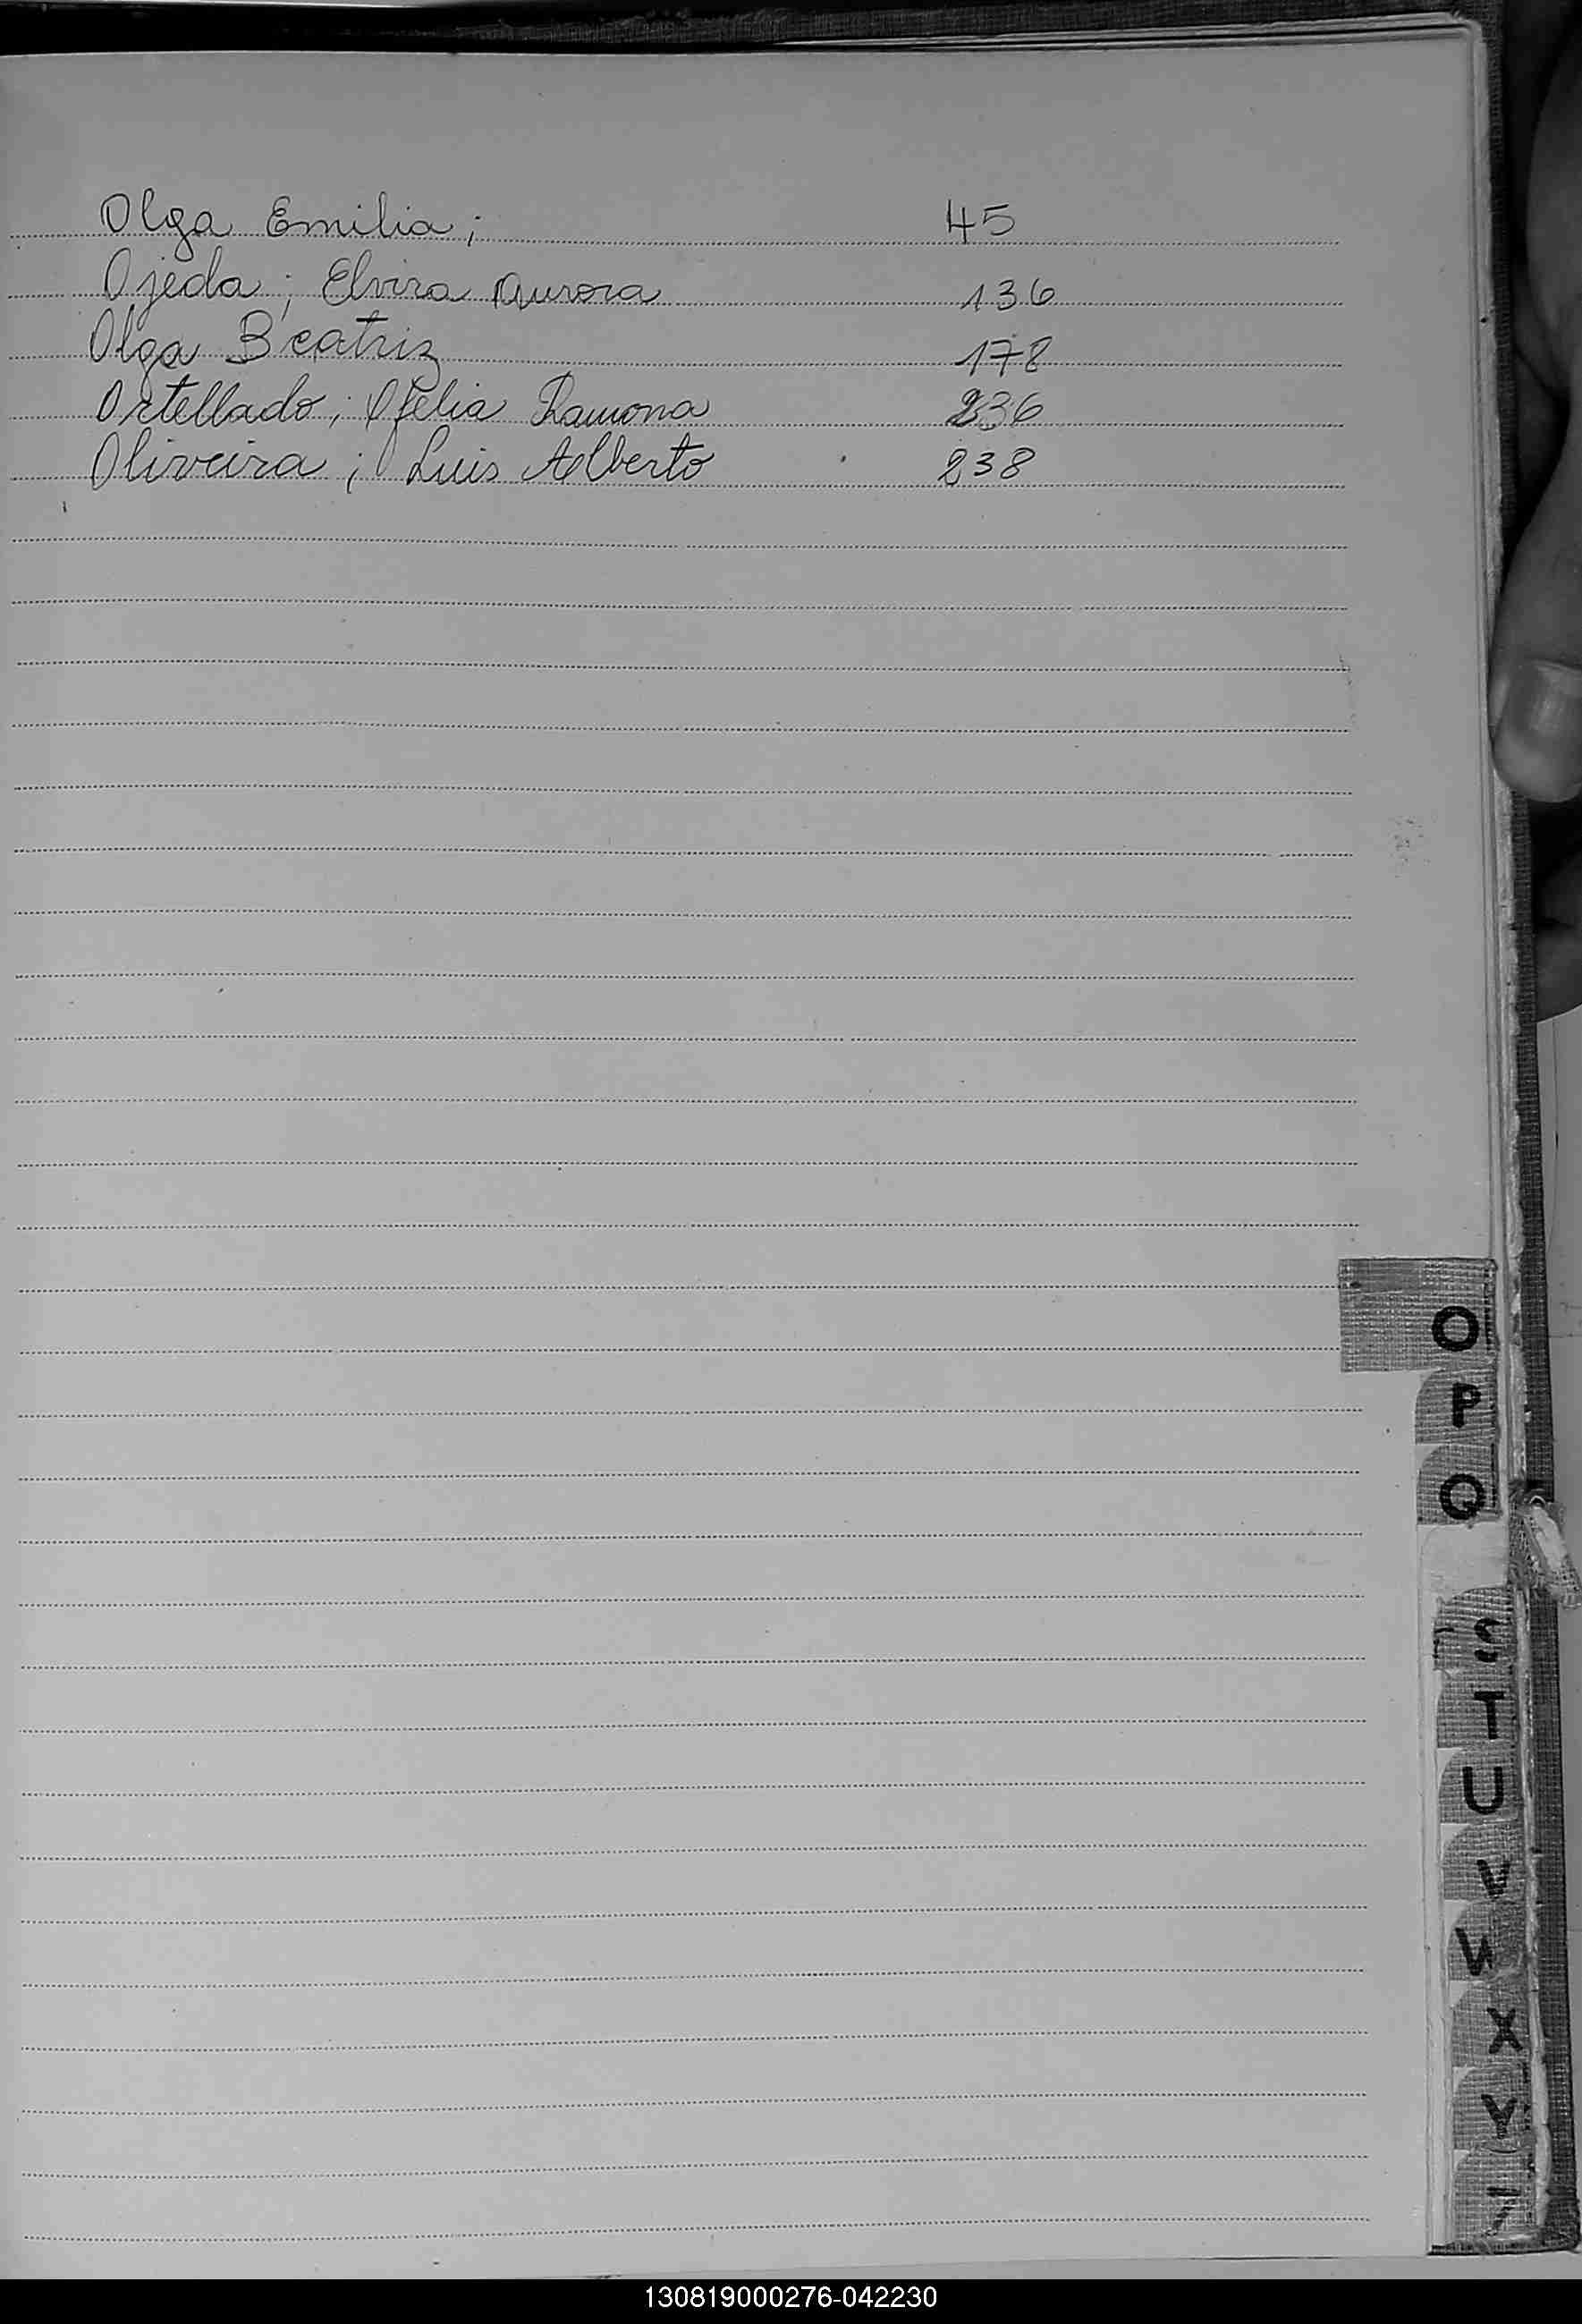 Olga Emilia; 45
Ojeda; Elvira Aurora 136
Olga Beatriz 178
Ortellado; Ofelia Ramona 236
Oliveira; Luis Alberto 238
O
P
Q
S
T
U
V
W
X
Y
Z
130819000276-042230